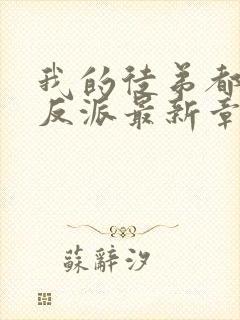 我的徒弟都
反派最新章
蘇辭汐